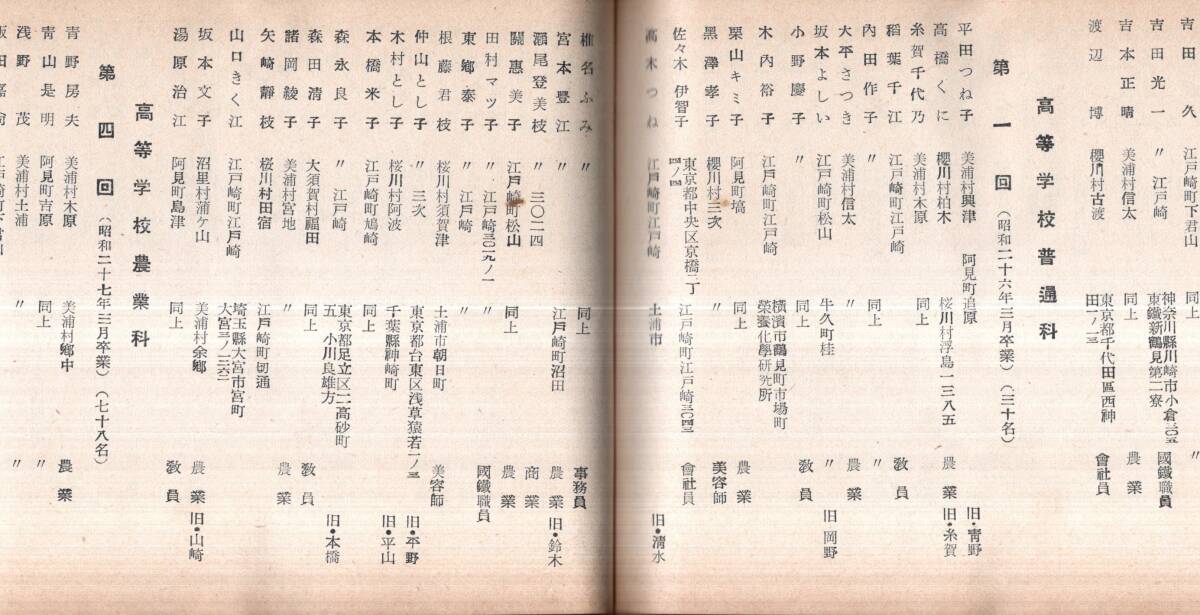 田 久 江戸崎町下君山 同上 〃
吉田光一 〃 江戸崎 神奈川縣川崎市小倉三〇五東鐵新鶴見第二寮 國鐵職員
吉本正晴 美浦村信太 同上 農業
渡辺 博 櫻川村古渡 東京都千代田區西神田一ノ三 會社員
高等學校普通科
第一回 (昭和二十六年三月卒業) (三十名)
平田つね子 美浦村興津 阿見町追原 旧・靑野
高橋くに 櫻川村柏木 桜川村浮島一三八五 農業 旧・糸賀
糸賀千代乃 美浦村木原 同上
稲葉千江 江戸崎町江戸崎 敎員
內田作子 〃 同上 〃
大平さつき 美浦村信太 〃 農業
坂本よしい 江戸崎町松山 牛久町桂 〃 旧・岡野
小野慶子 〃 同上 敎員
木內裕子 江戸崎町江戸崎 橫濱市鶴見町市場町榮養化學研究所
栗山キミ子 阿見町塙 同上 農業
黑澤孝子 櫻川村三次 〃 美容師
佐々木伊智子 東京都中央区京橋二丁四ノ四 江戸崎町江戸崎三〇四三 會社員
髙木つね 江戸崎町江戸崎 土浦市 旧・淸水
椎名ふみ 〃 同上 事務員
宮本豐江 〃 江戸崎町沼田 農業 旧・鈴木
瀬尾登美枝 〃 三〇二四 商業
關惠美子 江戸崎町松山 同上 農業
田村マツ子 〃 江戸崎三〇二九ノ一 國鐵職員
東鄕泰子 〃 江戸崎 〃
根藤君枝 桜川村須賀津 土浦市朝日町 美容師
仲山とし子 〃 三次 東京都台東区浅草猿若一ノ三 旧・平野
木村とし子 桜川村阿波 千葉縣神崎町 旧・平山
本橋米子 江戸崎町鳩崎 同上
森永良子 〃 江戸崎 東京都足立区二高砂町五 小川良雄方 旧・本橋
森田淸子 大須賀村福田 同上 敎員
諸岡綾子 美浦村宮地 〃 農業
矢崎靜枝 桜川村田宿 江戸崎町切通
山口きく江 江戸崎町江戸崎 埼玉縣大宮市宮町大宮三ノ二六二
坂本文子 沼里村蒲ケ山 美浦村余鄕 農業 旧・山崎
湯原治江 阿見町島津 同上 敎員
高等学校農業科
第四回 (昭和二十七年三月卒業) (七十八名)
靑野房夫 美浦村木原 美浦村鄕中 農業
靑山是明 阿見町吉原 同上 〃
浅野 茂 美浦村土浦 〃 〃
飯田嘉 江戸崎町下君山